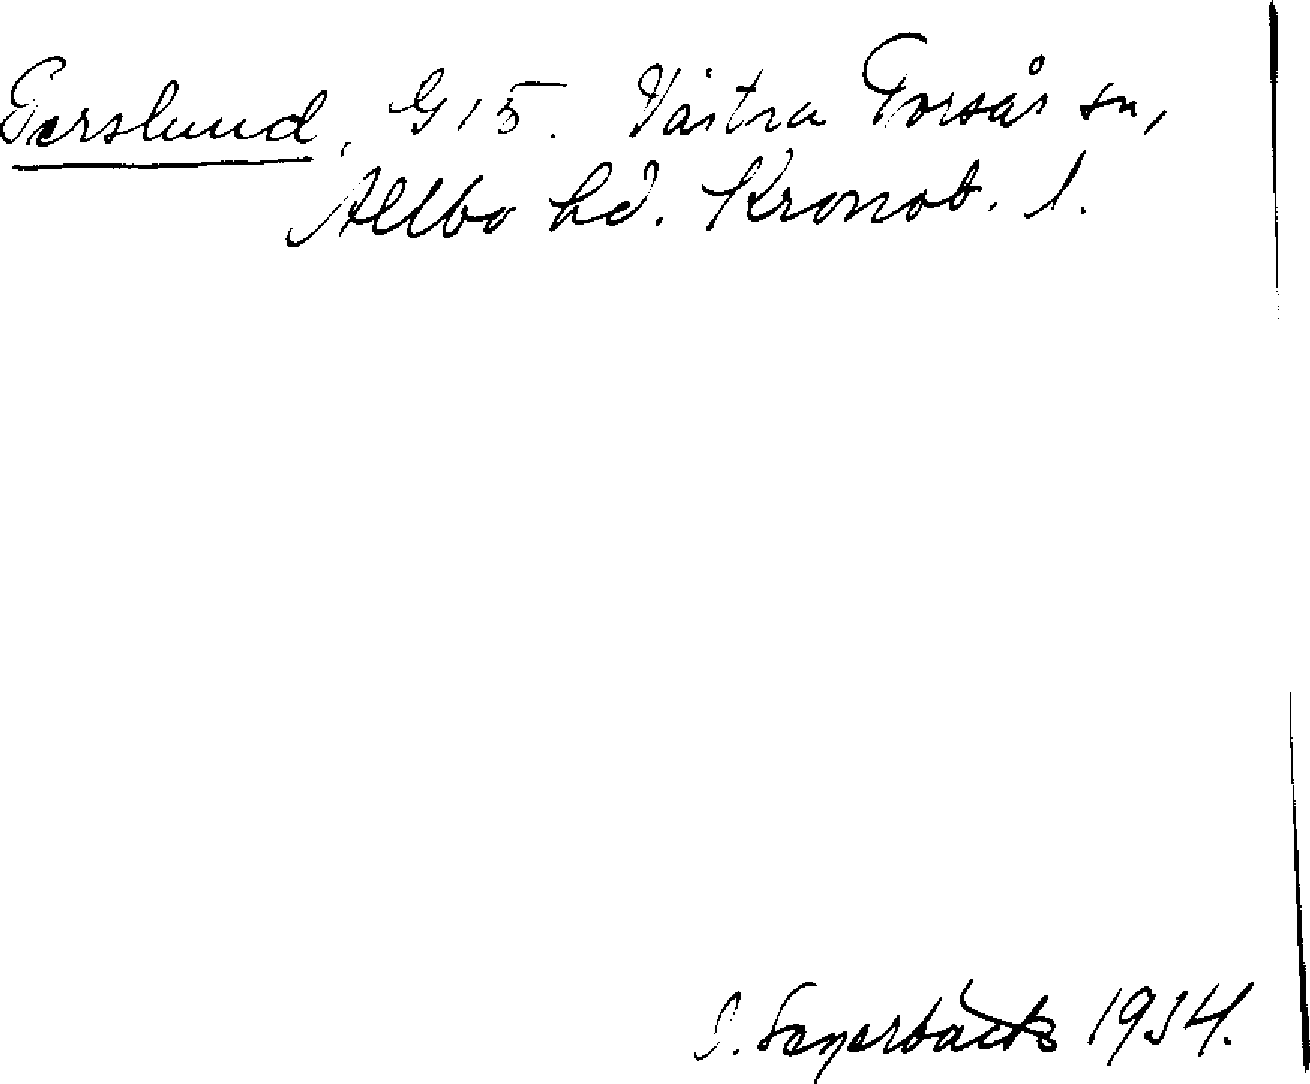 Perslund, G 15. Västra Torsås sn,
Allbo hd. Kronob. l.
1934.